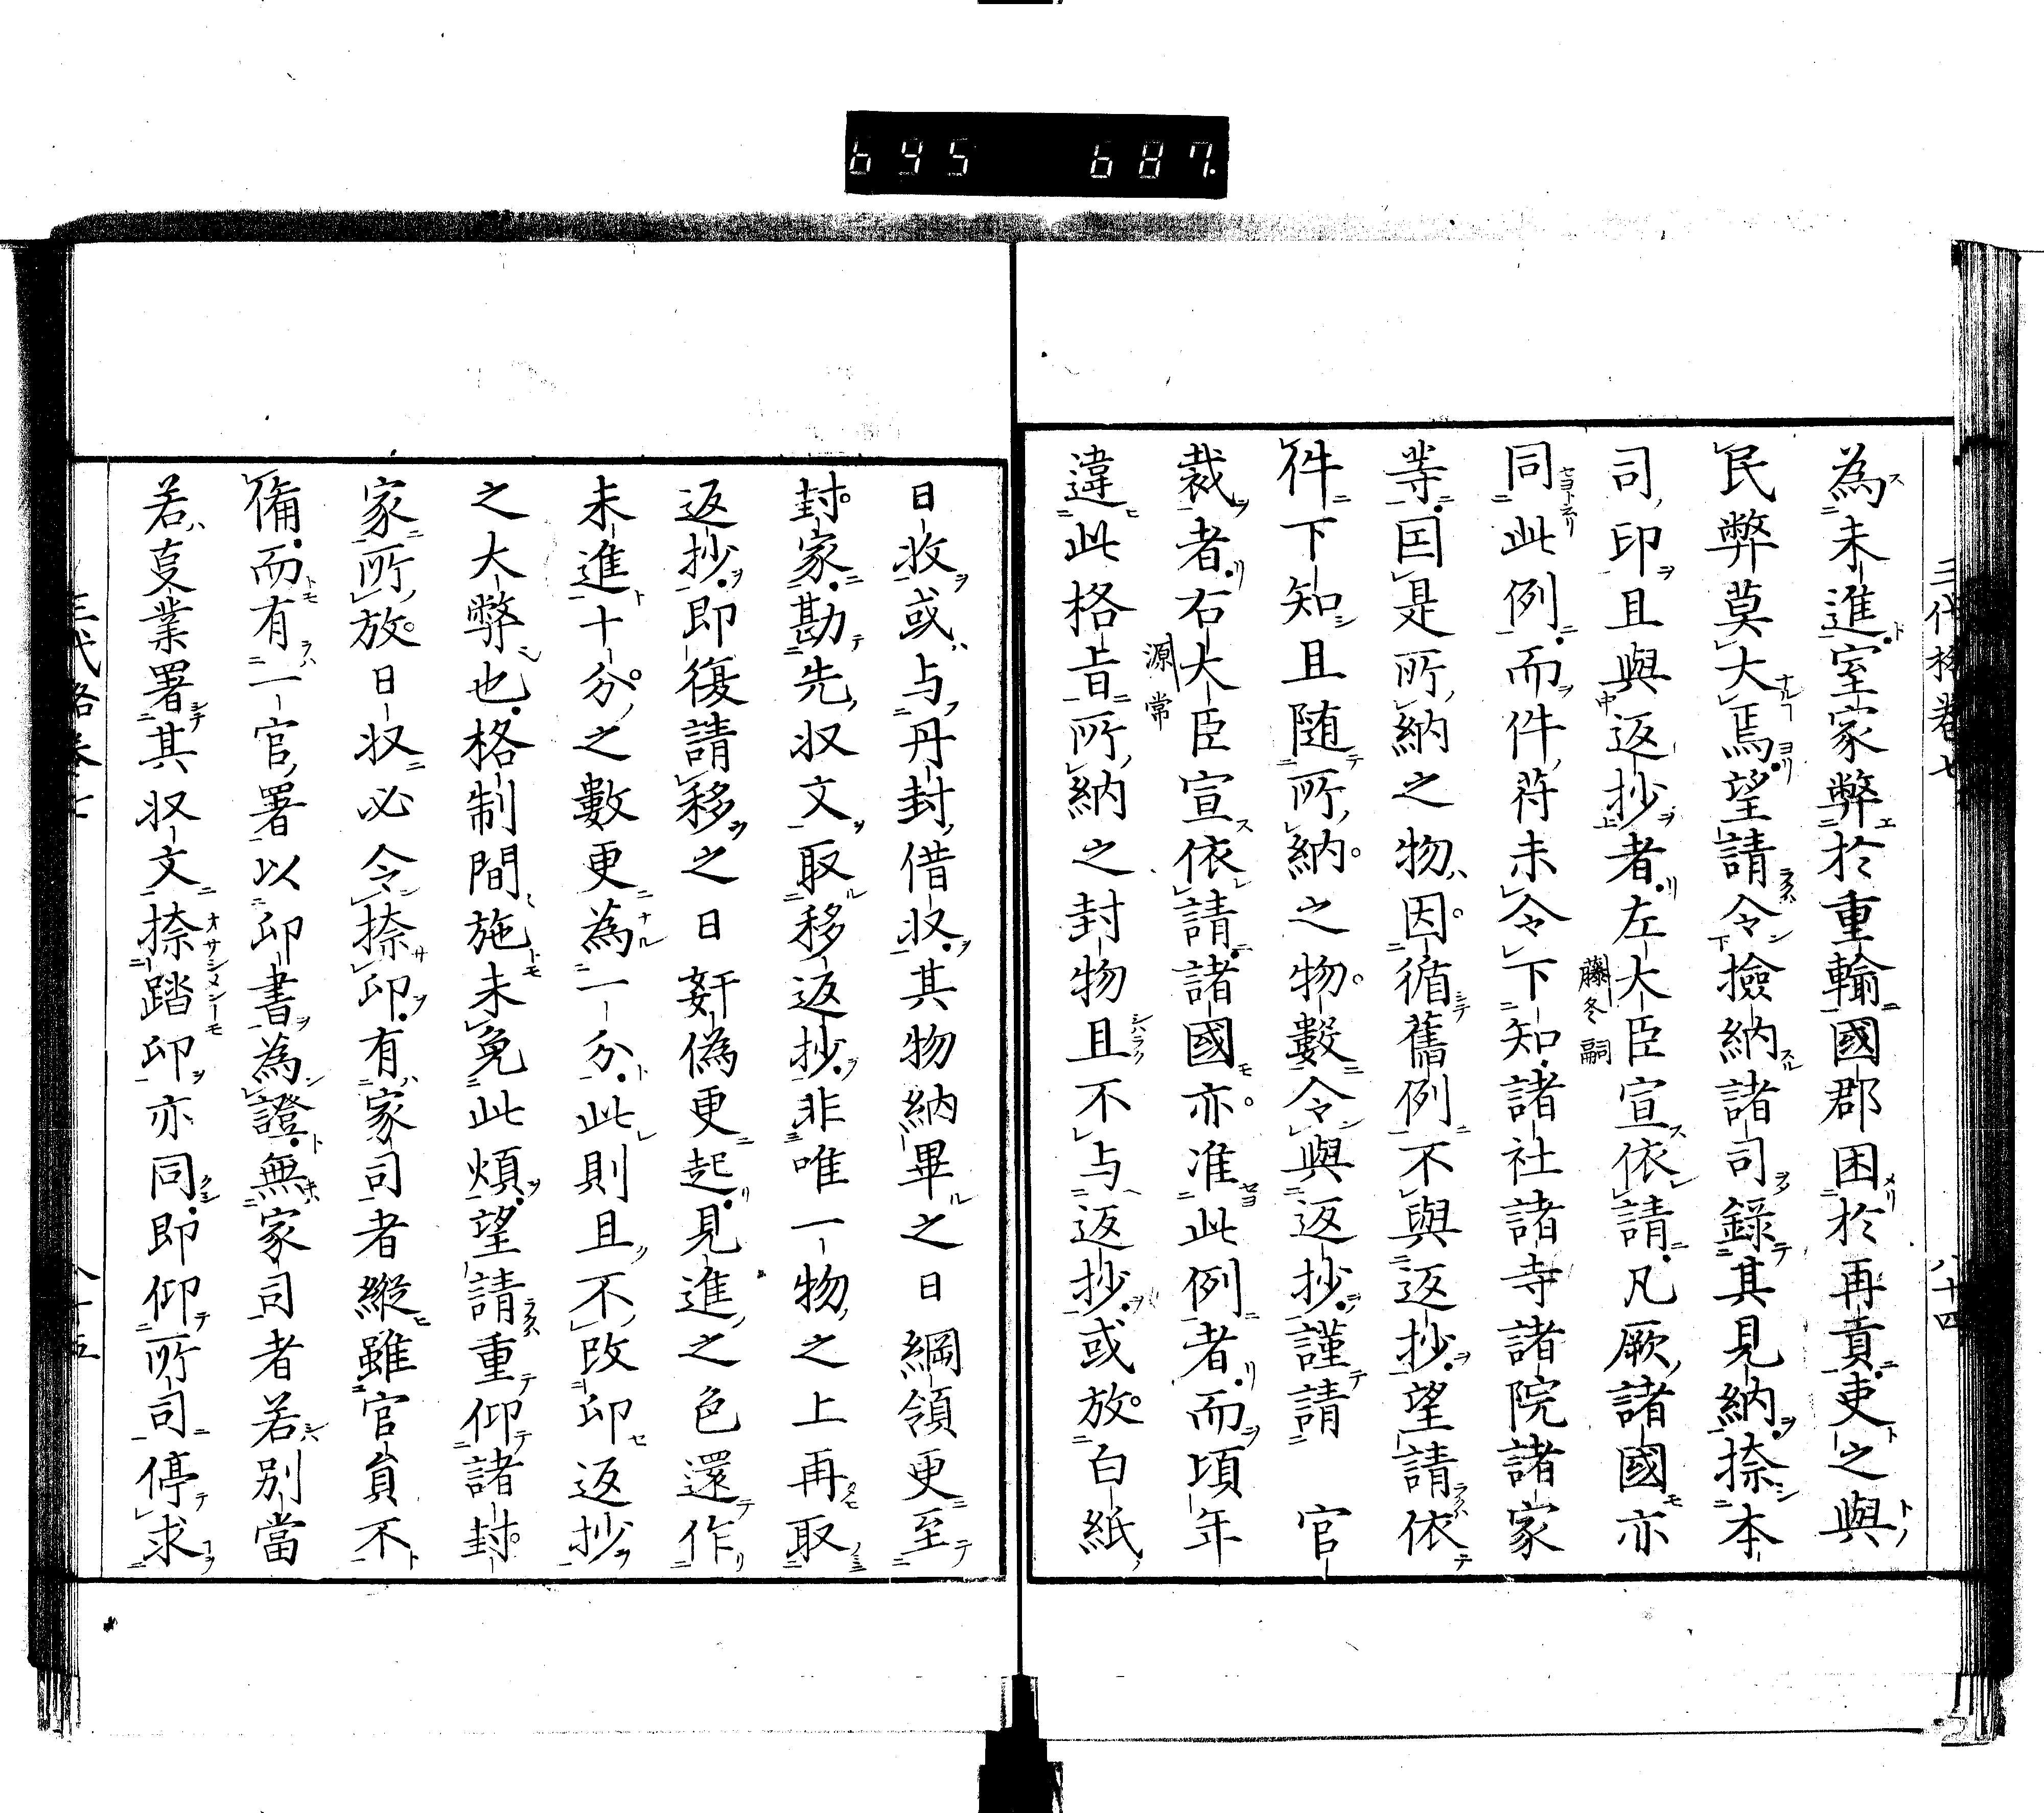 695 687.
三代格卷七 八十四
為未進室家弊於重輸國郡困於再貢吏之與
民弊莫大焉望請令撿納諸司錄其見納捺本
司印且與返抄者左大臣宣依請凡厥諸國亦
藤冬嗣
同此例而件苻未令下知諸社諸寺諸院諸家
等国是所納之物因循舊例不與返抄望請依
件下知且随所納之物數令與返抄謹請 官
裁者右大臣宣依請諸國亦准此例者而項年
源常
違此格旨所納之封物且不与返抄或放白紙
日收或与丹封借収其物納畢之日綱領更至
封家勘先収文取移返抄非唯一物之上再取
返抄即復請移之日姧偽更起見進之色還作
未進十分之數更為一分此則且不改印返抄
之大弊也格制間施未免此煩望請重仰諸封
家所放日収必令捺印有家司者縱雖官員不
俻而有一官署以印書為證無家司者若別當
若㕝業署其収文捺踏印亦同即仰所司停求
三代格卷七 八十五